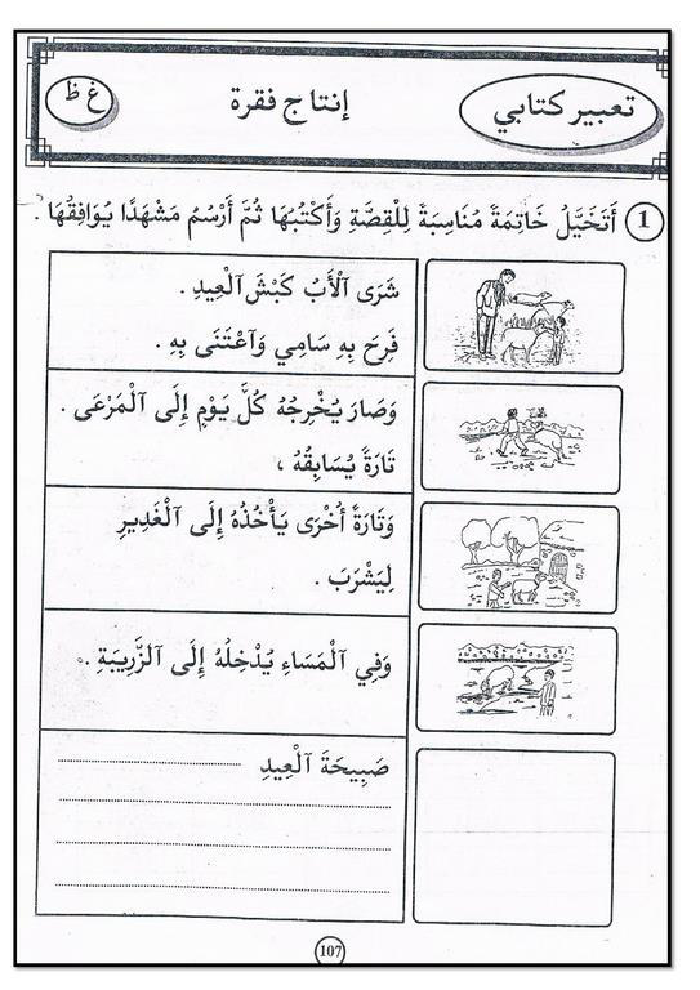 تعبير كتابي
إنتاج فقرة
غ ظ
1 أَتَخَيَّلُ خَاتِمَةً مُنَاسِبَةً لِلْقِصَّةِ وَأَكْتُبُهَا ثُمَّ أَرْسُمُ مَشْهَدًا يُوَافِقُهَا .
شَرَى ٱلْأَبُ كَبْشَ ٱلْعِيدِ .
فَرِحَ بِهِ سَامِي وَٱعْتَنَى بِهِ .
وَصَارَ يُخْرِجُهُ كُلَّ يَوْمٍ إِلَى ٱلْمَرْعَى .
تَارَةً يُسَابِقُهُ ،
وَتَارَةً أُخْرَى يَأْخُذُهُ إِلَى ٱلْغَدِيرِ
لِيَشْرَبَ .
وَفِي ٱلْمَسَاءِ يُدْخِلُهُ إِلَى ٱلزَّرِيبَةِ .
صَبِيحَةَ ٱلْعِيدِ
107